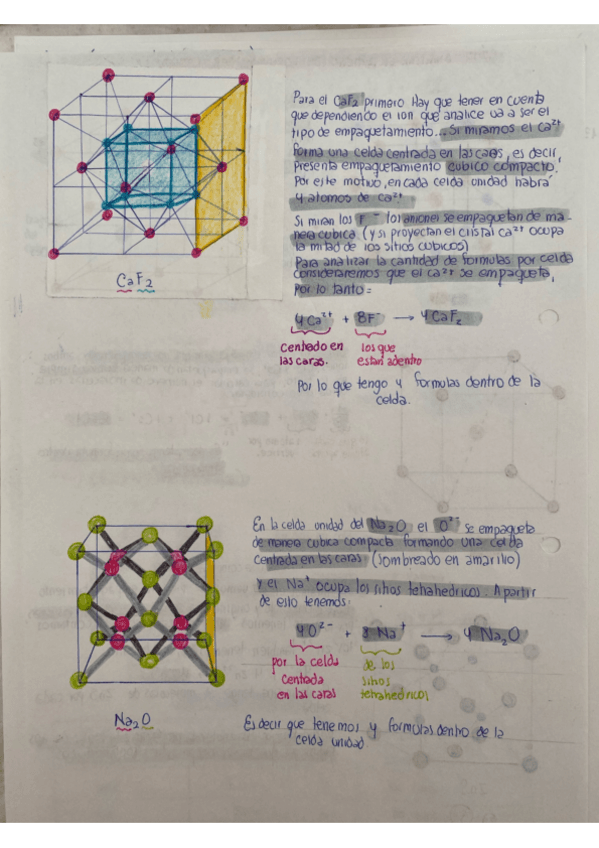 Para el CaF2 primero Hay que tener en cuenta
que dependiendo el ion que analice va a ser el
tipo de empaquetamiento... Si miramos el Ca²⁺
forma una celda centrada en las caras, es decir,
presenta empaquetamiento cubico compacto.
Por este motivo, en cada celda unidad habrá
4 atomos de Ca²⁺
Si miran los F⁻ los aniones se empaquetan de ma-
nera cubica. (y si proyectan el cristal Ca²⁺ ocupa
la mitad de los sitios cubicos)
Para analizar la cantidad de formulas por celda
consideraremos que el Ca²⁺ se empaqueta,
por lo tanto =
CaF2
4Ca²⁺ + 8F⁻ → 4CaF2
centrado en las caras.
los que estan adentro
Por lo que tengo 4 formulas dentro de la
celda.
En la celda unidad del Na2O el O²⁻ se empaqueta
de manera cubica compacta formando una celda
centrada en las caras (sombreado en amarillo)
y el Na⁺ ocupa los sitios tetrahedricos. A partir
de esto tenemos:
4O²⁻ + 8Na⁺ → 4Na2O
por la celda centada en las caras
de los sitios tetrahedricos
Na2O
Es decir que tenemos 4 formulas dentro de la
celda unidad